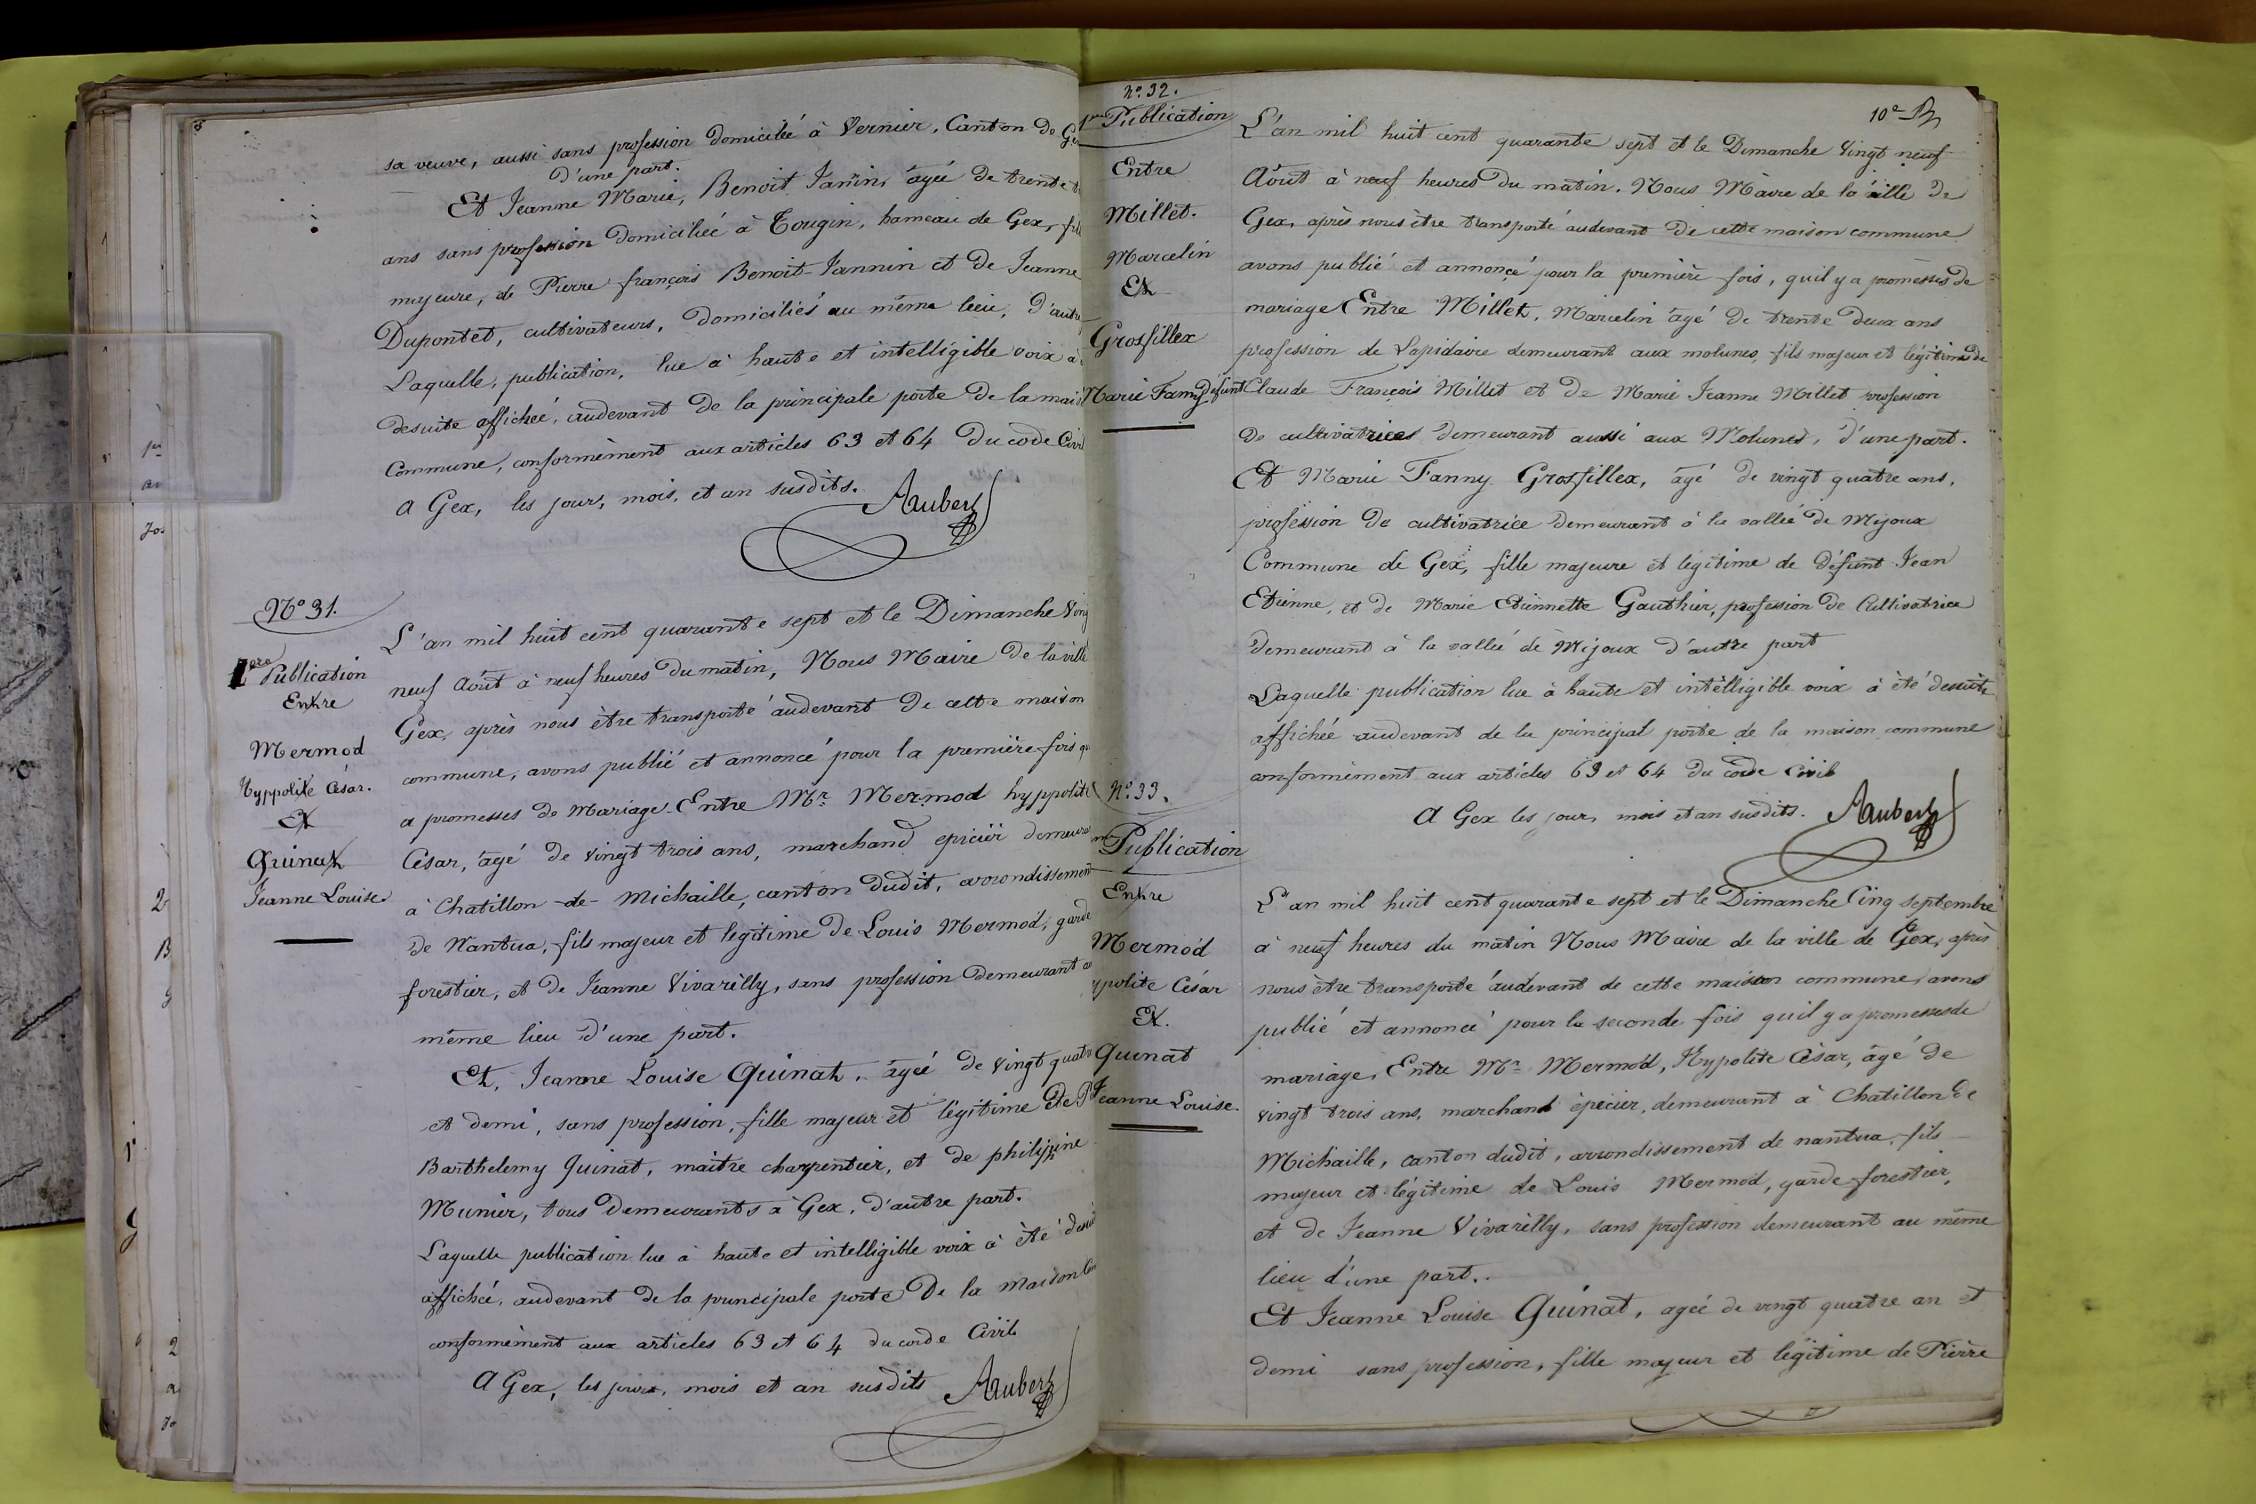 sa veuve, aussi sans profession domiciliée à Vernier, Canton de
d'une part.
Et Jeanne Marie, Benoit Jannin, âgée de trente
ans sans profession domiciliée à Tougin, hameau de Gex,
majeure, de Pierre françois Benoit-Jannin et de Jeanne
Dupontet, cultivateurs, domiciliés au même lieu, d'autre
Laquelle, publication, lue à haute et intelligible voix à
desuite affichée, audevant de la principale porte de la
Commune, conformément aux articles 63 et 64 du code Civil
a Gex, les jours, mois, et an susdits.
Aubert
Nº 31.
1ère Publication
Entre
Mermod
hyppolite César.
Et
Quinat
Jeanne Louise
L'an mil huit cent quarante sept et le Dimanche
neuf Août à neuf heures du matin, Nous Maire de la ville
Gex, après nous être transporté audevant de cette maison
commune, avons publié et annoncé pour la première fois
a promesses de Mariage. Entre Mr Mermod hyppolite
César, âgé de vingt trois ans, marchand epicier
à Chatillon-de-Michaille, canton dudit, arrondissement
de Nantua, fils majeur et legitime de Louis Mermod, garde
forestier, et de Jeanne Vivarilly, sans profession demeurant
même lieu d'une part.
Et, Jeanne Louise Quinat, âgée de vingt quatre
et demi, sans profession, fille majeur et légitime de
Barthelemy Quinat, maitre charpentier, et de philipine
Munier, tous demeurants à Gex, d'autre part.
Laquelle publication lue à haute et intelligible voix à été
affiché, audevant de la principale porte de la maison
conformément aux articles 63 et 64 du code Civil
A Gex, les jours, mois et an susdits
Aubert
Nº. 32.
Publication
Entre
Millet.
Marcelin
Et
Grosfillex
Marie Fanny
10e
L'an mil huit cent quarante sept et le Dimanche Vingt neuf
Août à neuf heures du matin. Nous Maire de la ville de
Gex, après nous être transporté audevant de cette maison commune
avons publié et annoncé pour la première fois, quil y a promesses de
mariage Entre Millet, Marcelin âgé de trente deux ans
profession de Lapidaire demeurant aux molunes, fils majeur et légitime de
défunt Claude François Millet et de Marie Jeanne Millet profession
de cultivatrices demeurant aussi aux Molunes, d'une part.
Et Marie Fanny Grosfillex, âgé de vingt quatre ans,
profession de cultivatrice demeurant à la vallée de Mijoux
Commune de Gex, fille majeure et légitime de défunt Jean
Etienne, et de Marie Etiennette Gauthier, profession de Cultivatrice
demeurant à la vallée de Mijoux d'autre part
Laquelle publication lue à haute et intelligible voix à été desuite
affichée audevant de la principal porte de la maison commune
conformément aux articles 63 et 64 du code Civil
A Gex les jour, mois et an susdits.
Aubert
Nº. 33.
Publication
Entre
Mermod
César
Et.
Quinat
Jeanne Louise.
L'an mil huit cent quarante sept et le Dimanche Cinq septembre
à neuf heures du matin Nous Maire de la ville de Gex, après
nous être transporté audevant de cette maison commune, avons
publié et annoncé pour la seconde fois quil y a promesses de
mariage, Entre Mr Mermod, Hypolite César, âgé de
vingt trois ans, marchand épicier, demeurant à Chatillon de
Michaille, canton dudit, arrondissement de nantua, fils
majeur et légitime de Louis Mermod, garde-forestier,
et de Jeanne Vivarilly, sans profession demeurant au même
lieu d'une part..
Et Jeanne Louise Quinat, agée de vingt quatre an et
demi sans profession, fille majeur et légitime de Pierre